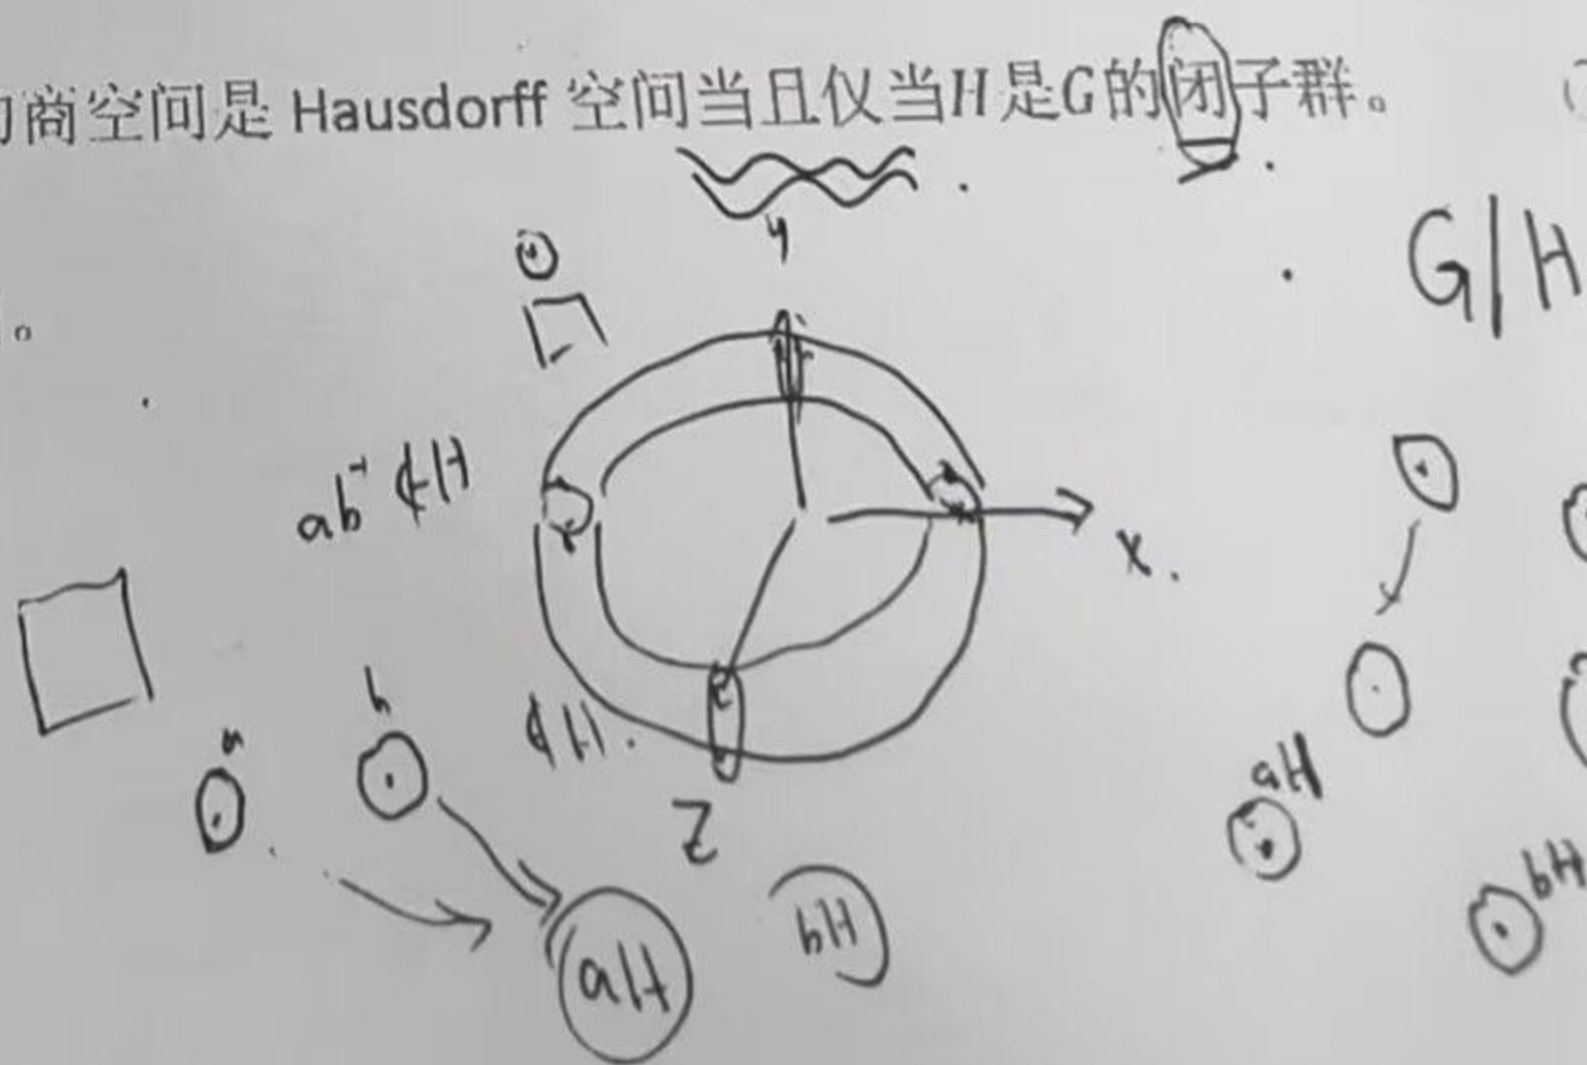 商空间是 Hausdorff 空间当且仅当H是G的闭子群。
y
G/H
。
ab⁻¹∉H
x.
b
∉H.
a
aH
z
bH
bH
aH